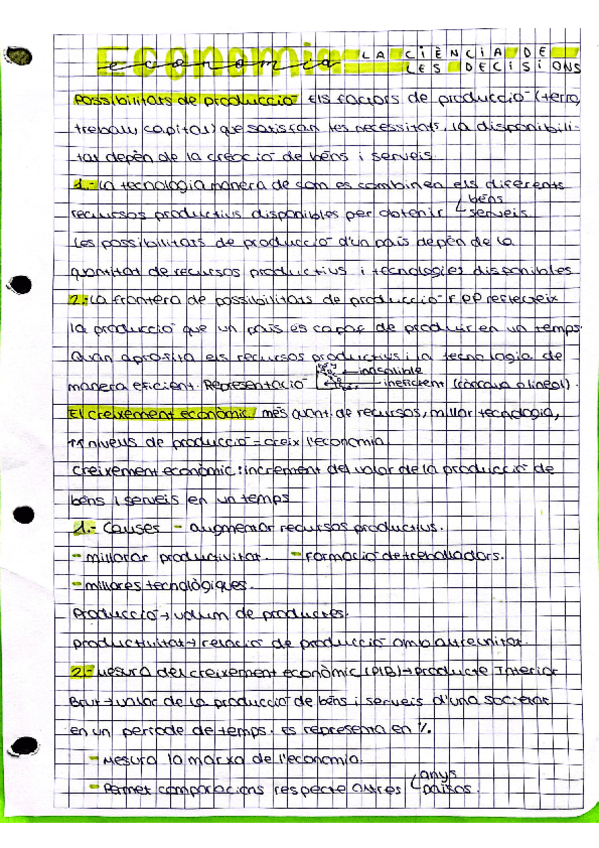 Economia LA CIÈNCIA DE
economia LES DECISIONS
Possibilitats de producció Els factors de producció (terra,
treball, capital) que satisfan les necessitats, la disponibili-
tat depèn de la creació de béns i serveis.
1.- La tecnologia manera de com es combinen els diferents
recursos productius disponibles per obtenir béns
serveis
Les possibilitats de producció d'un país depèn de la
quantitat de recursos productius i tecnologies disponibles
2.- La frontera de possibilitats de producció FPP reflecteix
la producció que un país es capaç de produir en un temps.
Quan aprofita els recursos productius i la tecnologia de
inasolible
manera eficient. Representació ineficient (corava o lineal).
El creixement econòmic / més quant. de recursos, millor tecnologia,
↑↑ nivells de producció = creix l'economia.
Creixement econòmic: increment del valor de la producció de
béns i serveis en un temps
1.- Causes - augmentar recursos productius.
- millorar productivitat. - Formació de treballadors.
- millores tecnològiques.
Producció → volum de productes.
Productivitat → relació de producció amb
2.- Mesura del creixement econòmic (PIB) → producte Interior
Brut → valor de la producció de béns i serveis d'una societat
en un període de temps. es representa en %.
- Mesura la marxa de l'economia.
- Permet comparacions respecte altres anys
països.